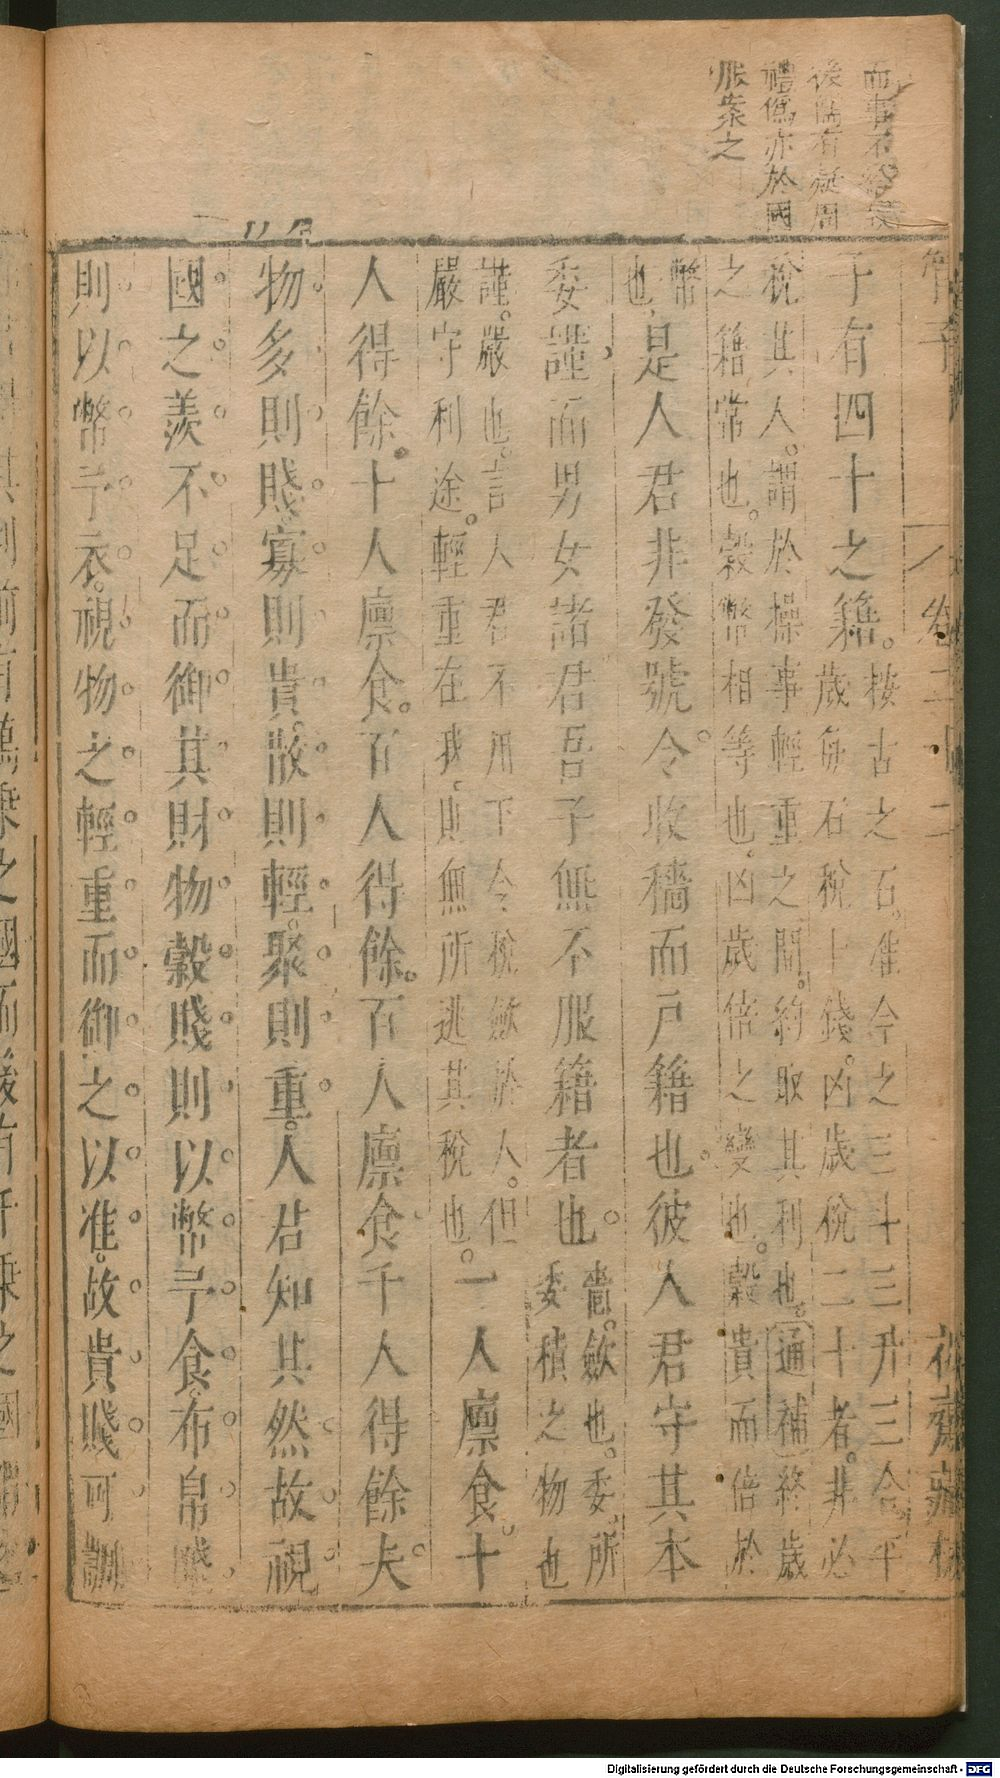 而事不
後儒有疑周
禮僞亦於國
服案之
管子
卷二十二
花齋藏板
子有四十之籍。按古之石。准今之三斗三升三合。平歲每石稅十錢。凶歲稅二十者。非必
稅其人。謂於操事輕重之間。約取其利也。通補終歲之籍常也。穀幣相等也。凶歲倍之變也。穀貴而倍於
幣也是人君非發號令收穡而戶籍也彼人君守其本
委謹而男女諸君吾子無不服籍者也。嗇。斂也。委。所委積之物也
謹。嚴也。言人君不用下令稅斂於人。但嚴守利途。輕重在我。則無所逃其稅也。一人廩食。十
人得餘。十人廩食。百人得餘。百人廩食千人得餘夫
物多則賤寡則貴散則輕聚則重人君知其然故視
國之羨不足而御其財物穀賤則以幣予食布帛賤
則以幣予衣視物之輕重而御之以准故貴賤可調
Digitalisierung gefördert durch die Deutsche Forschungsgemeinschaft - DFG